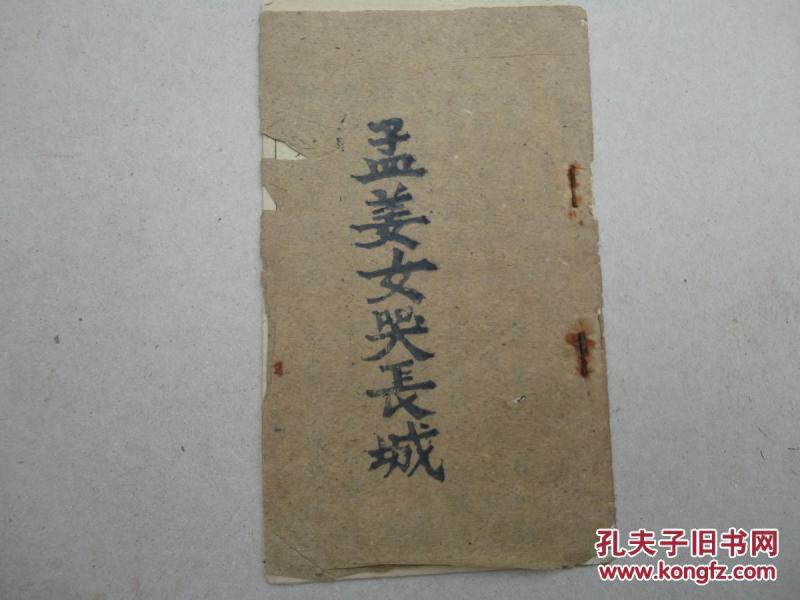 孟姜女哭長城
孔夫子旧书网
www.kongfz.com